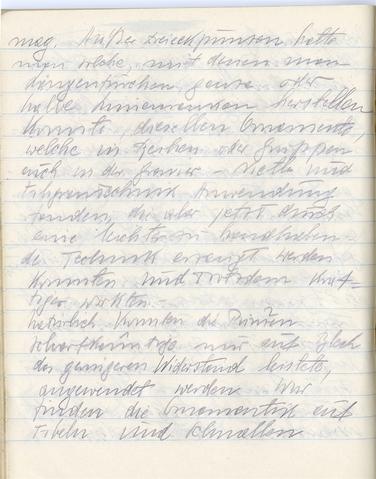 mag. Außer Dreieckpunzen hatte
man solche, mit denen man
ganze oder
halbe herstellen
konnte, dieselben Ornamente,
welche in Reihen oder Gruppen
auch in der Gravier - und
Anwendung
fanden, die aber jetzt durch
eine leichter zu handhaben-
de Technik erzeugt werden
konnten und trotzdem kräf-
tiger wirkten.-
Natürlich konnten die Punzen
nur auf Blech
das geringeren Widerstand leistete,
angewendet werden. Wir
finden die Ornamentik auf
Fibeln und Schnallen